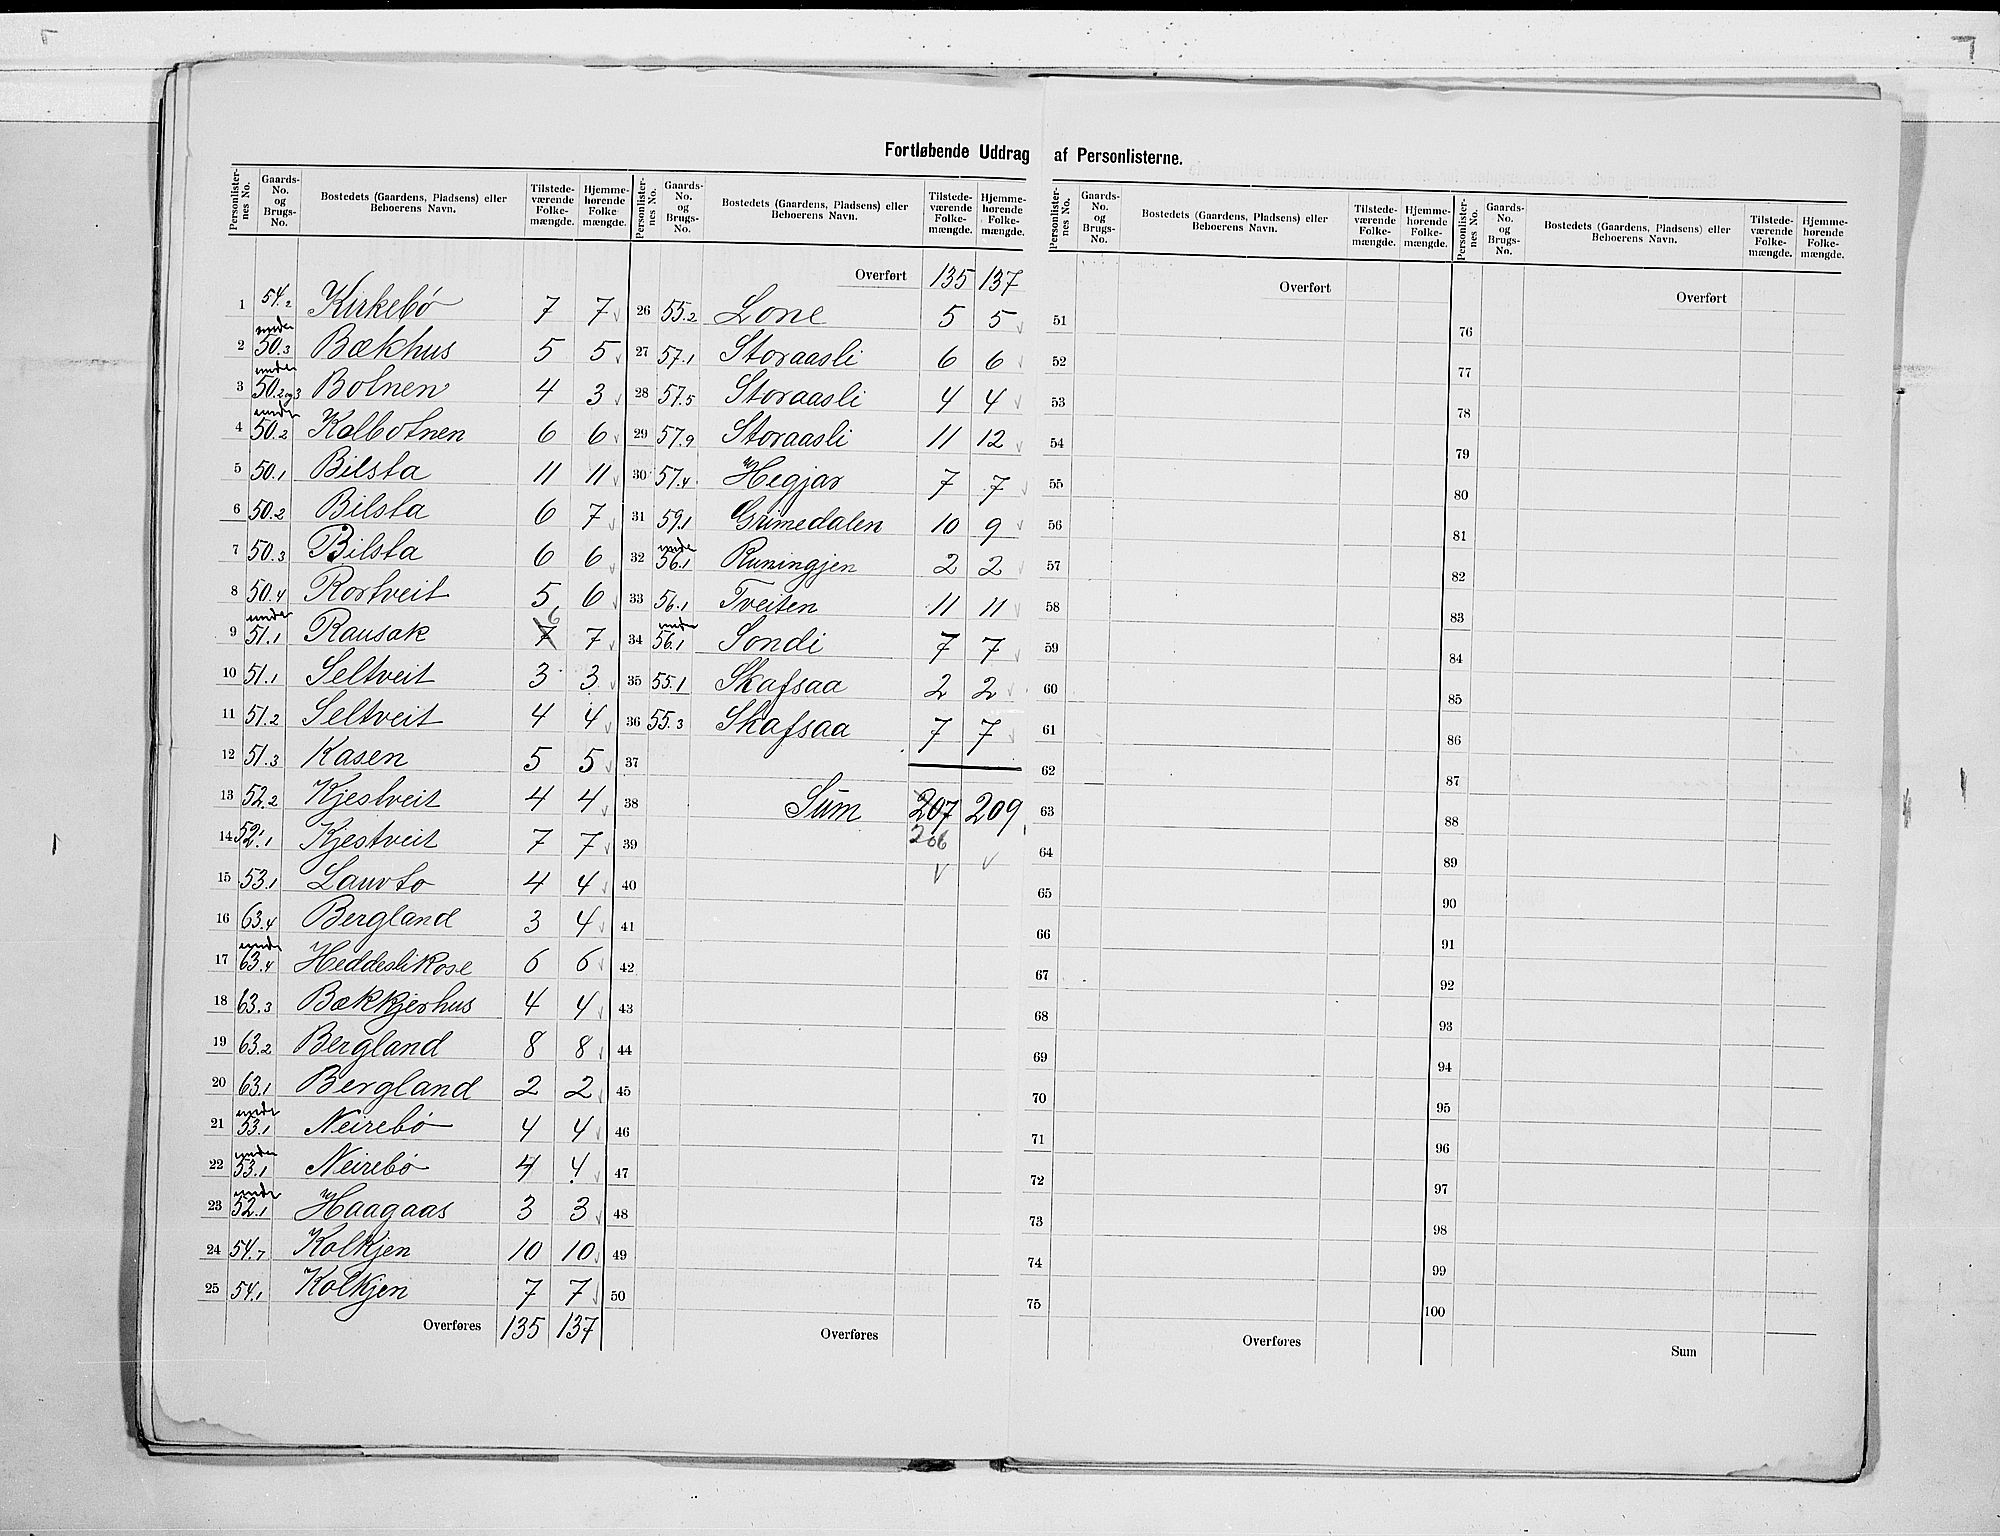 Fortløbende Uddrag af Personlisterne.
Personlisternes No. | Gaards-No. og Brugs-No. | Bostedets (Gaardens, Pladsens) eller Beboerens Navn. | Tilstedeværende Folkemængde. | Hjemmehørende Folkemængde.
1 54.2 Kirkebø 7 7
2 under 50.3 Bækhus 5 5
3 under 50.2og3 Botnen 4 3
4 under 50.2 Kalbotnen 6 6
5 50.1 Bilsta 11 11
6 50.2 Bilsta 6 7
7 50.3 Bilsta 6 6
8 50.4 Rortveit 5 6
9 under 51.1 Rausak 7 6 7
10 51.1 Seltveit 3 3
11 51.2 Seltveit 4 4
12 51.3 Kasen 5 5
13 52.2 Kjestveit 4 4
14 52.1 Kjestveit 7 7
15 53.1 Lauvto 4 4
16 63.4 Bergland 3 4
17 under 63.4 Heddeslikose 6 6
18 63.3 Bækkjerhus 4 4
19 63.2 Bergland 8 8
20 63.1 Bergland 2 2
21 under 53.1 Neirebø 4 4
22 under 53.1 Neirebø 4 4
23 under 52.1 Haagaas 3 3
24 54.7 Kolkjen 10 10
25 54.1 Kolkjen 7 7
Overføres 135 137
Personlisternes No. | Gaards-No. og Brugs-No. | Bostedets (Gaardens, Pladsens) eller Beboerens Navn. | Tilstedeværende Folkemængde. | Hjemmehørende Folkemængde.
Overført 135 137
26 55.2 Lone 5 5
27 57.1 Storaasli 6 6
28 57.5 Storaasli 4 4
29 57.9 Storaasli 11 12
30 57.4 Hegjar 7 7
31 59.1 Grimedalen 10 9
32 under 56.1 Runingjen 2 2
33 56.1 Tveiten 11 11
34 under 56.1 Sondi 7 7
35 55.1 Skafsaa 2 2
36 55.3 Skafsaa 7 7
37
38 Sum 207 209
206
39
40
41
42
43
44
45
46
47
48
49
50
Overføres
Personlisternes No. | Gaards-No. og Brugs-No. | Bostedets (Gaardens, Pladsens) eller Beboerens Navn. | Tilstedeværende Folkemængde. | Hjemmehørende Folkemængde.
Overført
51
52
53
54
55
56
57
58
59
60
61
62
63
64
65
66
67
68
69
70
71
72
73
74
75
Overføres
Personlisternes No. | Gaards-No. og Brugs-No. | Bostedets (Gaardens, Pladsens) eller Beboerens Navn. | Tilstedeværende Folkemængde. | Hjemmehørende Folkemængde.
Overført
76
77
78
79
80
81
82
83
84
85
86
87
88
89
90
91
92
93
94
95
96
97
98
99
100
Sum